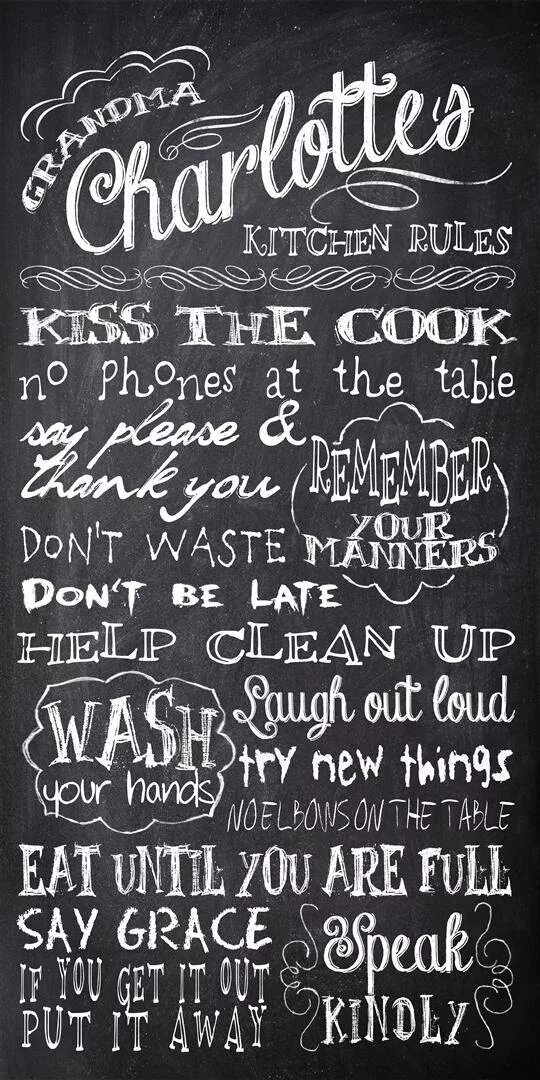 GRANDMA
Charlotte's
KITCHEN RULES
KISS THE COOK
no Phones at the table
say please &
thank you
REMEMBER
YOUR
MANNERS
DON'T WASTE
DON'T BE LATE
HELP CLEAN UP
WASH
your hands
Laugh out loud
try new things
NO ELBOWS ON THE TABLE
EAT UNTIL YOU ARE FULL
SAY GRACE
IF YOU GET IT OUT
PUT IT AWAY
Speak
KINDLY